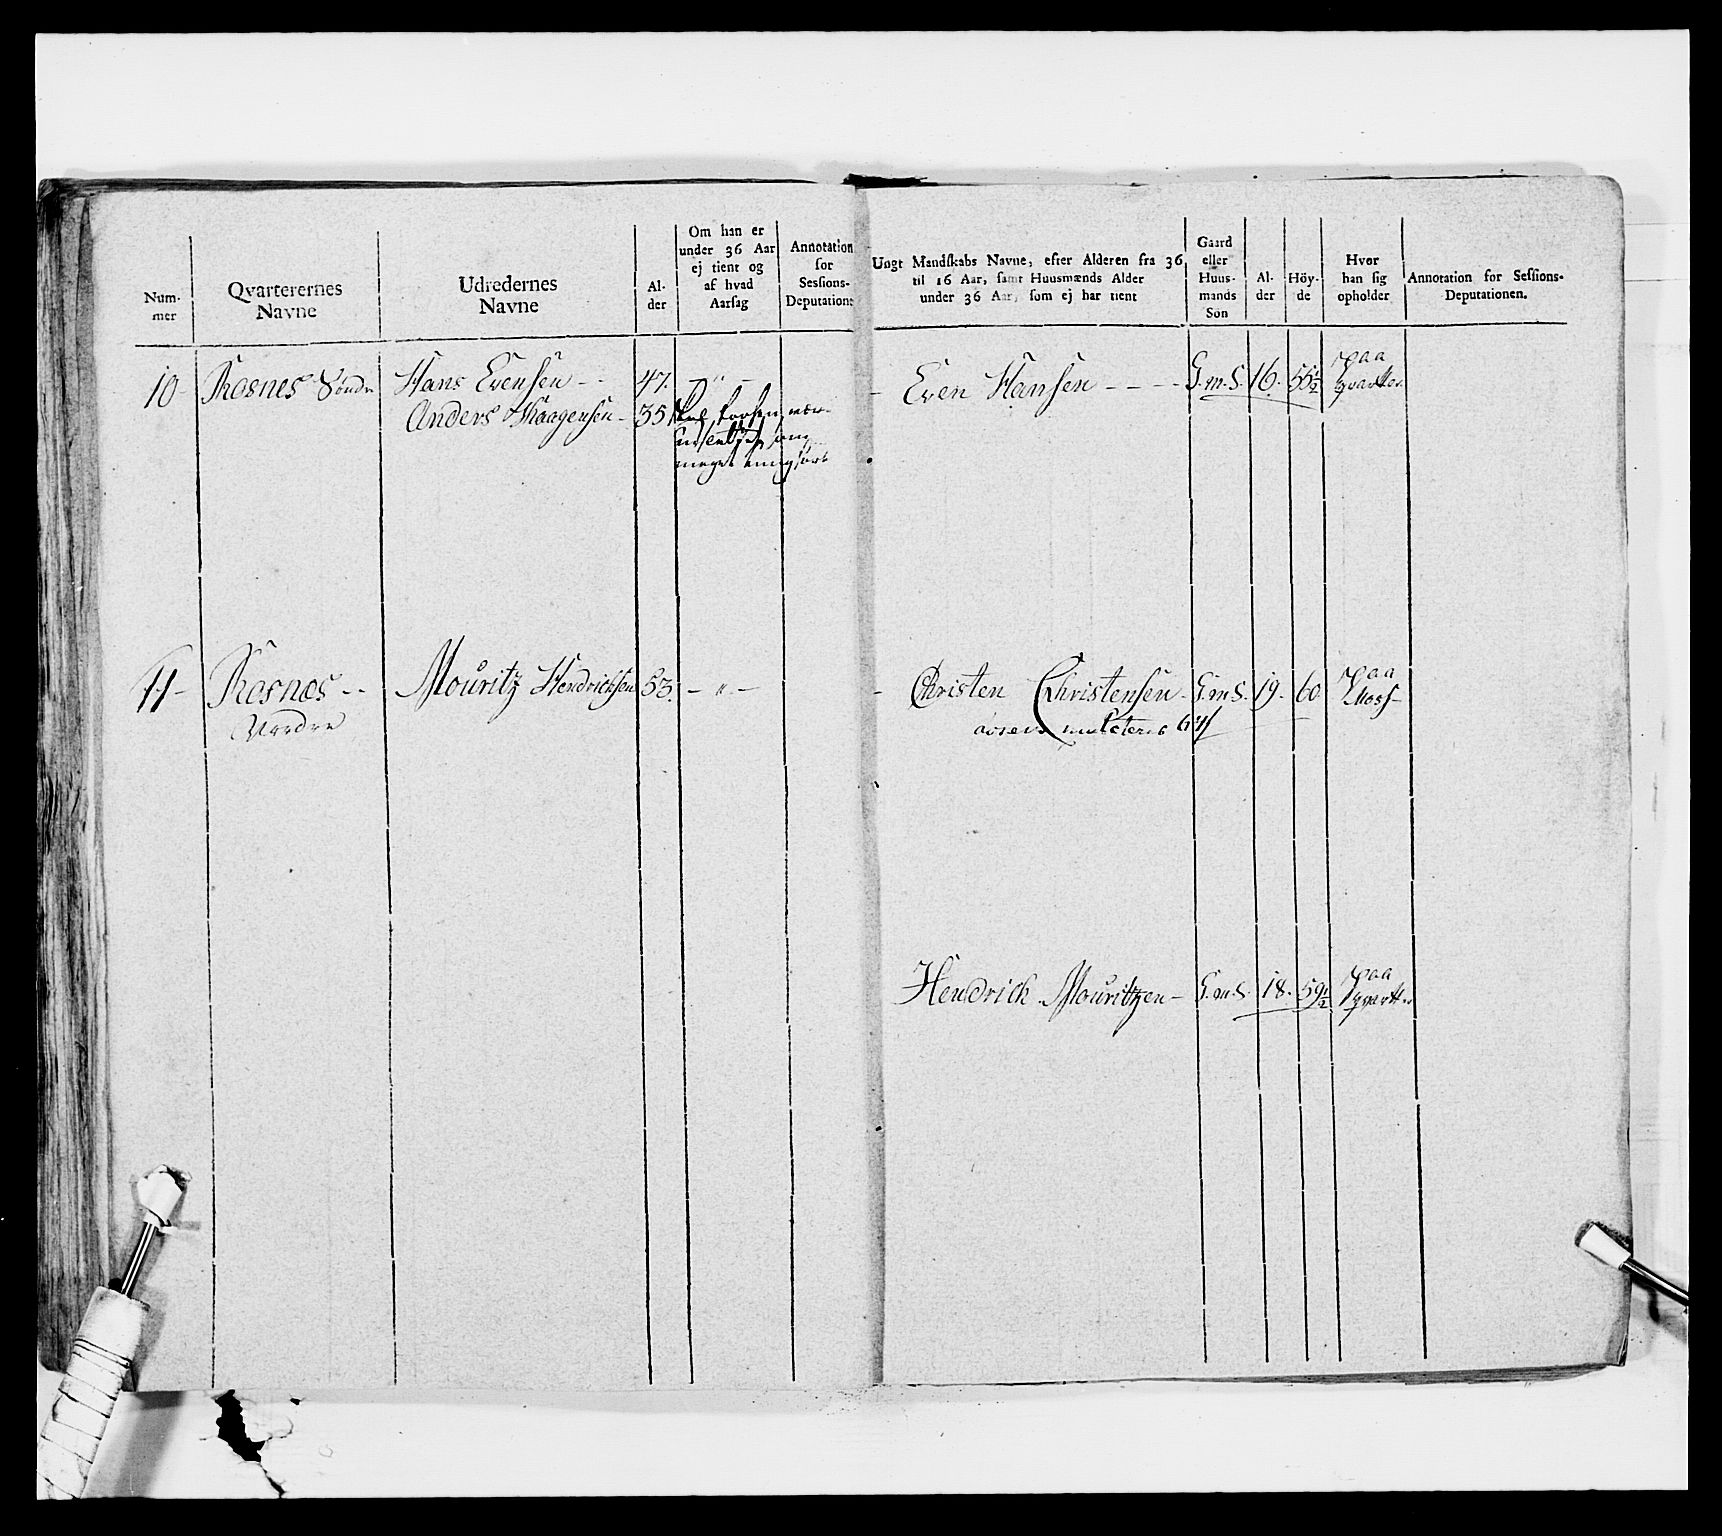 Num-
mer
Qvarterernes
Navne
Udredernes
Navne
Al-
der
Om han er
under 36 Aar
ej tient og
af hvad
Aarsag
Annotation
for
Sessions-
Deputationen
Ungt Mandskabs Navne, efter Alderen fra 36
til 16 Aar, samt Huusmænds Alder
under 36 Aar, som ej har tient
Gaard
eller
Huus-
mands
Søn
Al-
der
Höy-
de
Hvor
han sig
opholder
Annotation for Sessions-
Deputationen.
10 Rosnes Søndre Hans Evensen - - 47. - " -
Anders Haagensen - 35
meget
Even Hansen - - - - G.m.S. 16. 55½ paa
qvarter
11 - Rosnæs - - Mouritz Hendrichsen 53. - " -
Nordre
Christen Christensen - G.m.S. 19. 60 paa
Moss-
Hendrich Mouritzen - G.m.S. 18. 59½ paa
qvarter